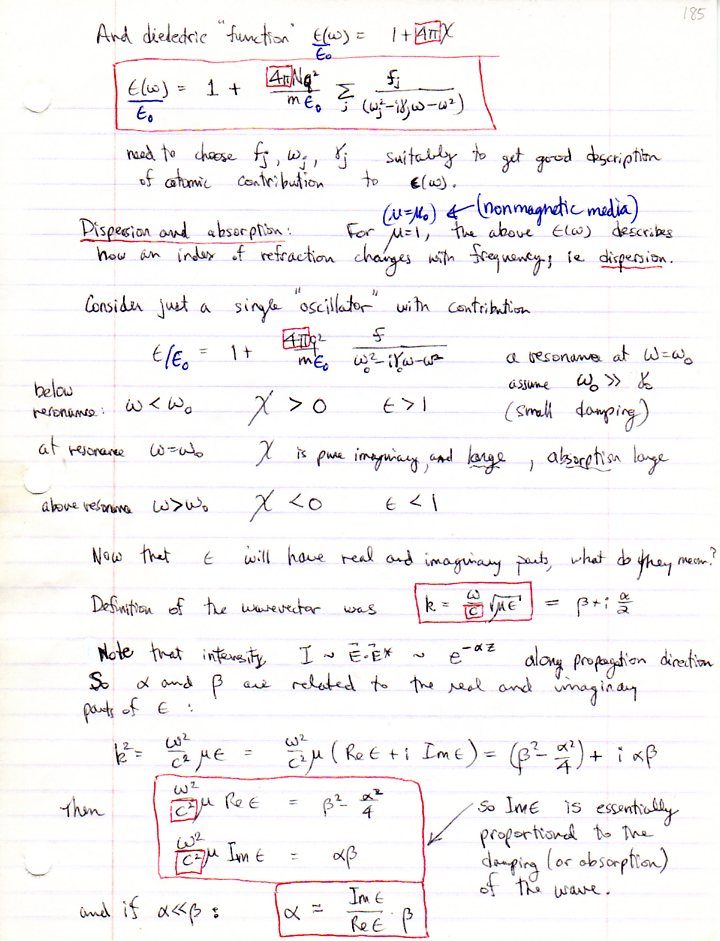 185
And dielectric "function" ε(ω)/ε₀ = 1 + 4π χ
ε(ω)/ε₀ = 1 + 4πNq²/mε₀ Σ_j f_j/(ω_j² - iγ_jω - ω²)
need to choose f_j, ω_j, γ_j suitably to get good description
of atomic contribution to ε(ω).
(μ=μ₀) ← (nonmagnetic media)
Dispersion and absorption: For μ=1, the above ε(ω) describes
how an index of refraction changes with frequency, ie dispersion.
Consider just a single "oscillator" with contribution
ε/ε₀ = 1 + 4πq²/mε₀ f/(ω₀² - iγ₀ω - ω²) a resonance at ω=ω₀
assume ω₀ >> γ₀
(small damping)
below
resonance: ω < ω₀ χ > 0 ε > 1
at resonance ω=ω₀ χ is pure imaginary, and large, absorption large
above resonance ω>ω₀ χ < 0 ε < 1
Now that ε will have real and imaginary parts, what do they mean?
Definition of the wavevector was k = ω/c √με = β + i α/2
Note that intensity I ~ E⃗·E⃗* ~ e^(-αz) along propagation direction
So α and β are related to the real and imaginary
parts of ε :
k² = ω²/c² με = ω²/c² μ (Re ε + i Im ε) = (β² - α²/4) + i αβ
Then ω²/c² μ Re ε = β² - α²/4
ω²/c² μ Im ε = αβ
so Im ε is essentially
proportional to the
damping (or absorption)
of the wave.
and if α<<β : α = Im ε/Re ε · β